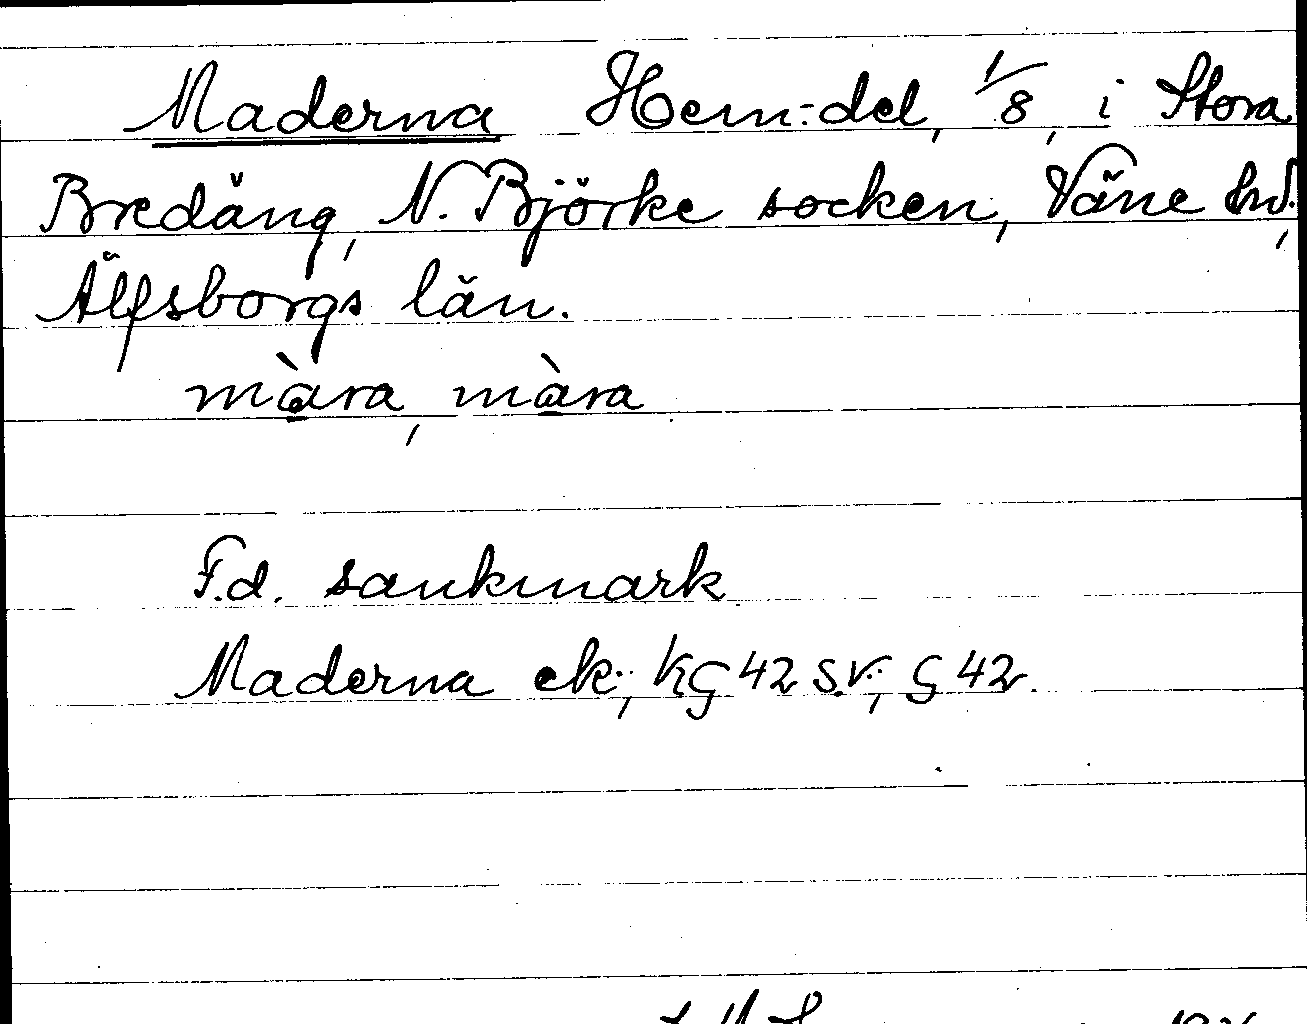 Maderna Hem:del, 1/8, i Stora
Bredäng, N. Björke socken, Väne hd.,
Älfsborgs län.
màra, màra
F.d. sankmark
Maderna ek., KG 42 S.V., G 42.